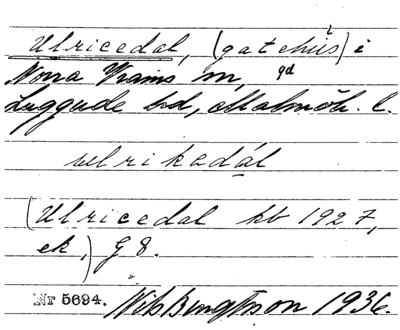 Ulricedal, (gatehus) i
Norra Vrams sn, gd
Luggude hd, Malmöh. l.
ulrikadál
(Ulricedal kb 1927,
ek,) G 8.
Nr 5694. Nils Bengtsson 1936.